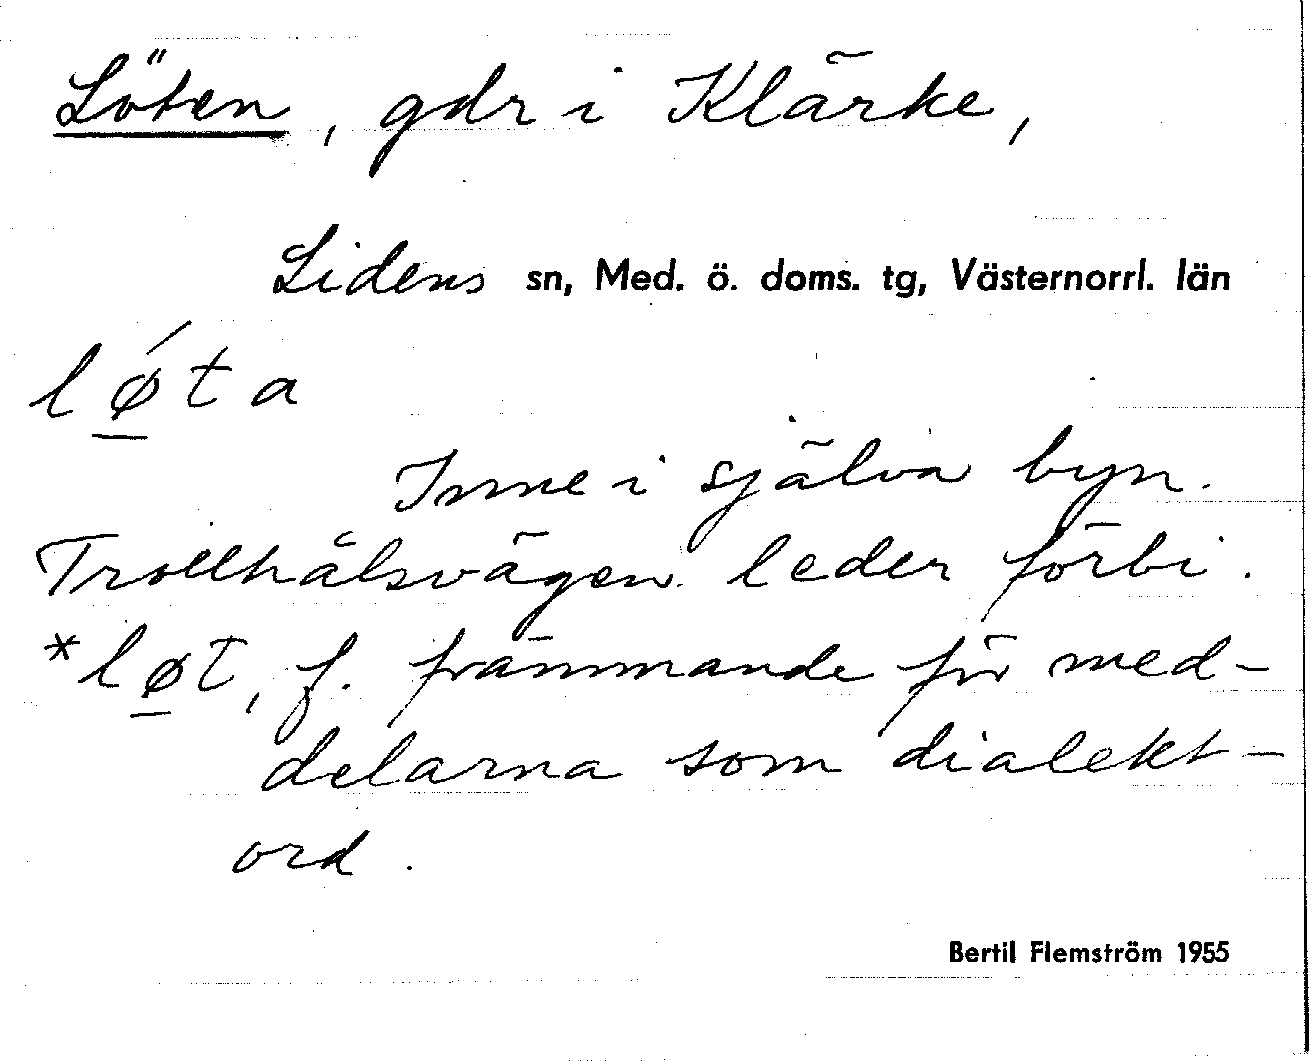 Löten, gdr i Klärke,
Lidens sn, Med. ö. doms. tg, Västernorrl. län
lǿ̲ta
Inne i själva byn.
Trollhålsvägen leder förbi.
*lø̲t, f. främmande för med-
delarna som dialekt-
ord.
Bertil Flemström 1955